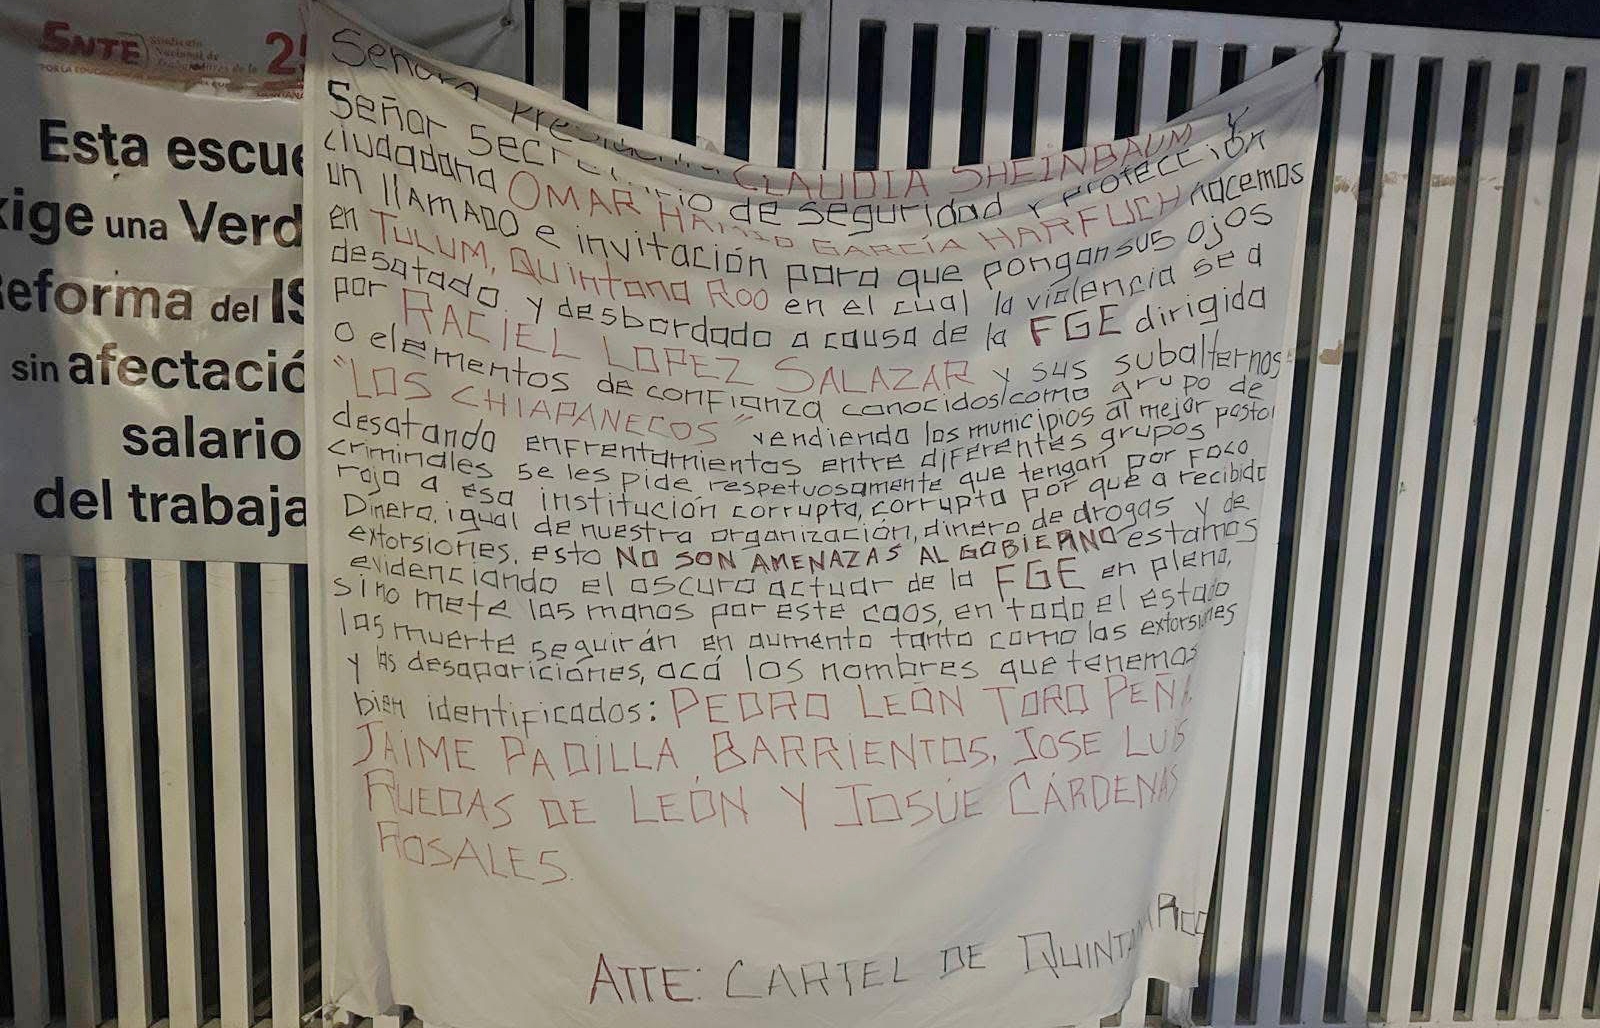 SNTE Sindicato Nacional de Trabajadores de la
POR LA EDUCACIÓN
Esta escue
xige una Verd
Reforma del IS
sin afectació
salario
del trabaja
Señora Presidenta CLAUDIA SHEINBAUM Y
Señor Secretario de seguridad y Protección
ciudadana OMAR HAMID GARCÍA HARFUCH hacemos
un llAMADO e invitación para que pongan sus ojos
en TULUM, Quintana ROO en el cual la violencia se a
desatado y desbordado a causa de la FGE dirigida
por RACIEL LOPEZ SALAZAR y sus subalternos
o elementos de confianza conocidos como grupo de
"LOS CHIAPANECOS" vendiendo los municipios al mejor postor
desatando enfrentamientos entre diferentes grupos
criminales se les pide respetuosamente que tengan por foco
rojo a esa institución corrupta, corrupta por que a recibido
Dinero, igual de nuestra organización, dinero de drogas y de
extorsiones. esto NO SON AMENAZAS AL GOBIERNO estamos
evidenciando el oscuro actuar de la FGE en pleno,
si no mete las manos por este caos, en todo el estado
las muerte seguirán en aumento tanto como las extorsiones
y las desapariciones, acá los nombres que tenemos
bien identificados: PEDRO LEÓN TORO PEÑA,
JAIME PADILLA BARRIENTOS, JOSE LUIS
RUEDAS DE LEÓN Y JOSÚE CÁRDENAS
ROSALES.
ATTE: CARTEL DE QUINTANA ROO